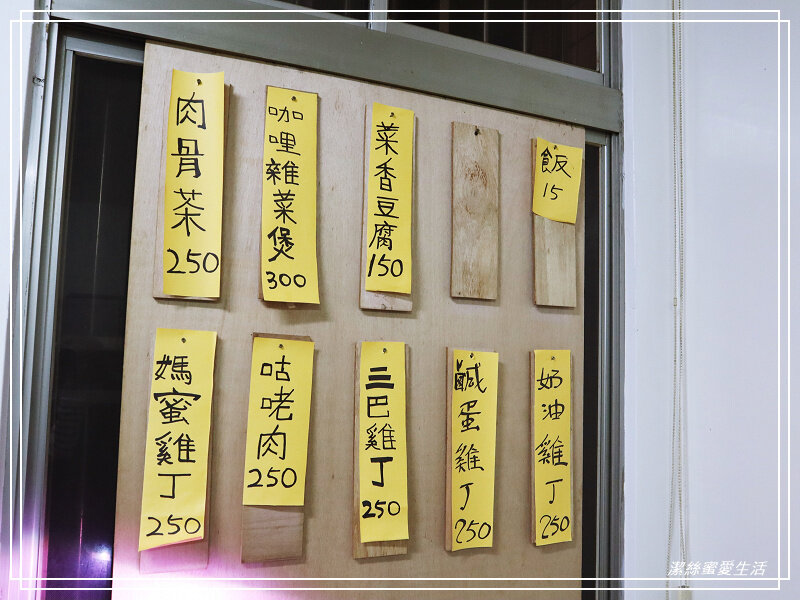 肉骨茶
250
咖哩雜菜煲
300
菜香豆腐
150
飯
15
媽蜜雞丁
250
咕咾肉
250
三巴雞丁
250
鹹蛋雞丁
250
奶油雞丁
250
潔絲蜜愛生活